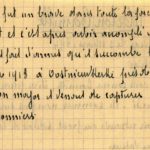 fut un brave dans toute la force
et c'est après avoir accompli
fait d'armes qu'il succombe
1918 à Oostnieuwkerke près de
major il venait de capturer
onniers